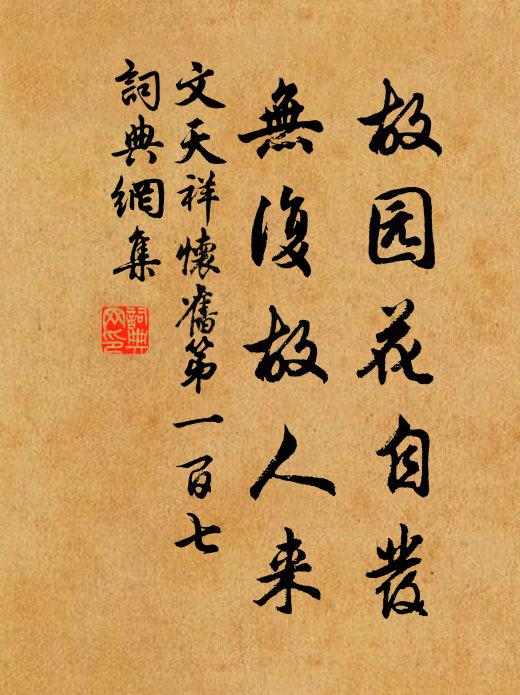 故园花自發
無復故人来
文天祥懷舊第一百七
詞典網集
詞典網印